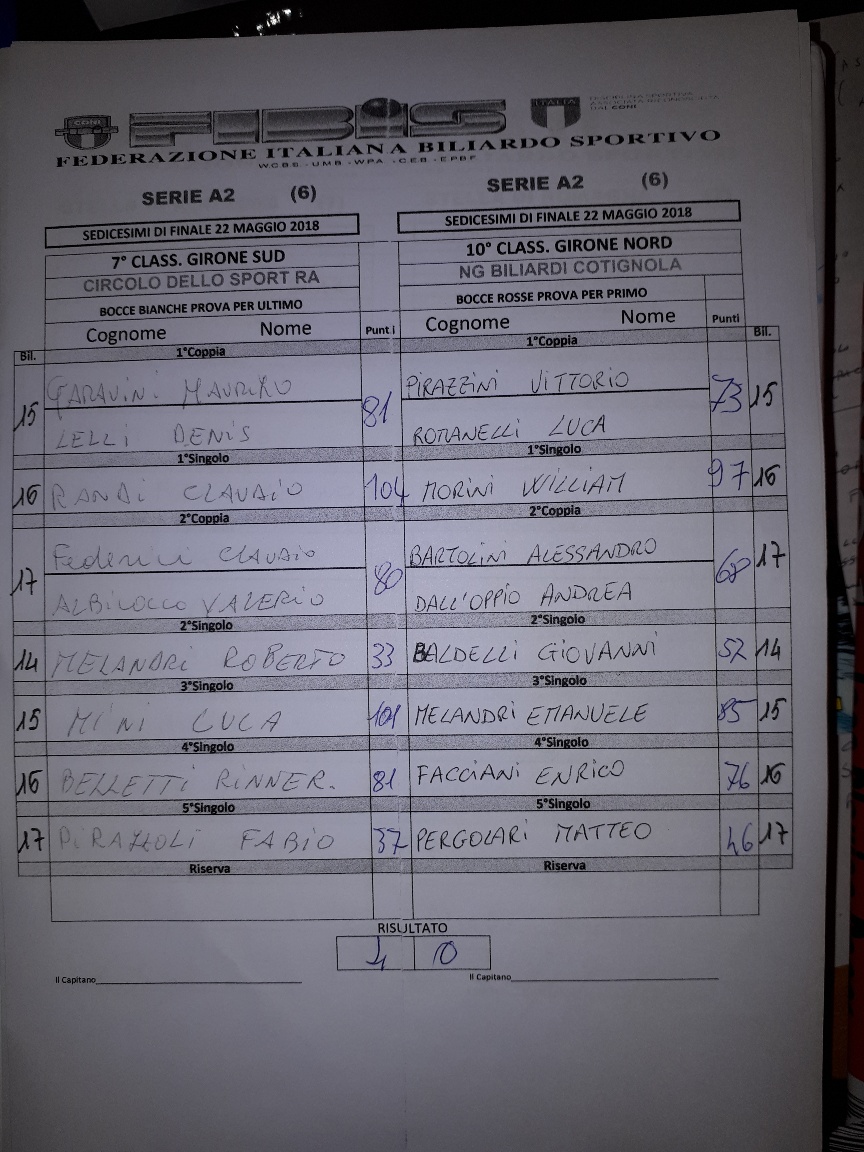 CONI FIBiS ITALIA
DAL CONI
FEDERAZIONE ITALIANA BILIARDO SPORTIVO
WCBS - UMB - WPA - CEB - EPBF
SERIE A2 (6) SERIE A2 (6)
SEDICESIMI DI FINALE 22 MAGGIO 2018 SEDICESIMI DI FINALE 22 MAGGIO 2018
7° CLASS. GIRONE SUD 10° CLASS. GIRONE NORD
CIRCOLO DELLO SPORT RA NG BILIARDI COTIGNOLA
BOCCE BIANCHE PROVA PER ULTIMO BOCCE ROSSE PROVA PER PRIMO
Cognome Nome Punti Cognome Nome Punti
Bil. 1°Coppia 1°Coppia Bil.
GARAVINI MAURIZIO PIRAZZINI VITTORIO
15 81 73 15
LELLI DENIS ROMANELLI LUCA
1°Singolo 1°Singolo
16 RANDI CLAUDIO 104 MORINI WILLIAM 97 16
2°Coppia 2°Coppia
Federici CLAUDIO BARTOLINI ALESSANDRO
17 80 17
ALBICOCCO VALERIO DALL'OPPIO ANDREA
2°Singolo 2°Singolo
14 MELANDRI ROBERTO 33 BALDELLI GIOVANNI 52 14
3°Singolo 3°Singolo
15 MINI LUCA 101 MELANDRI EMANUELE 85 15
4°Singolo 4°Singolo
16 BELLETTI RINNER. 81 FACCIANI ENRICO 76 16
5°Singolo 5°Singolo
17 PIRAZZOLI FABIO 37 PERGOLARI MATTEO 46 17
Riserva Riserva
RISULTATO
4 10
Il Capitano Il Capitano